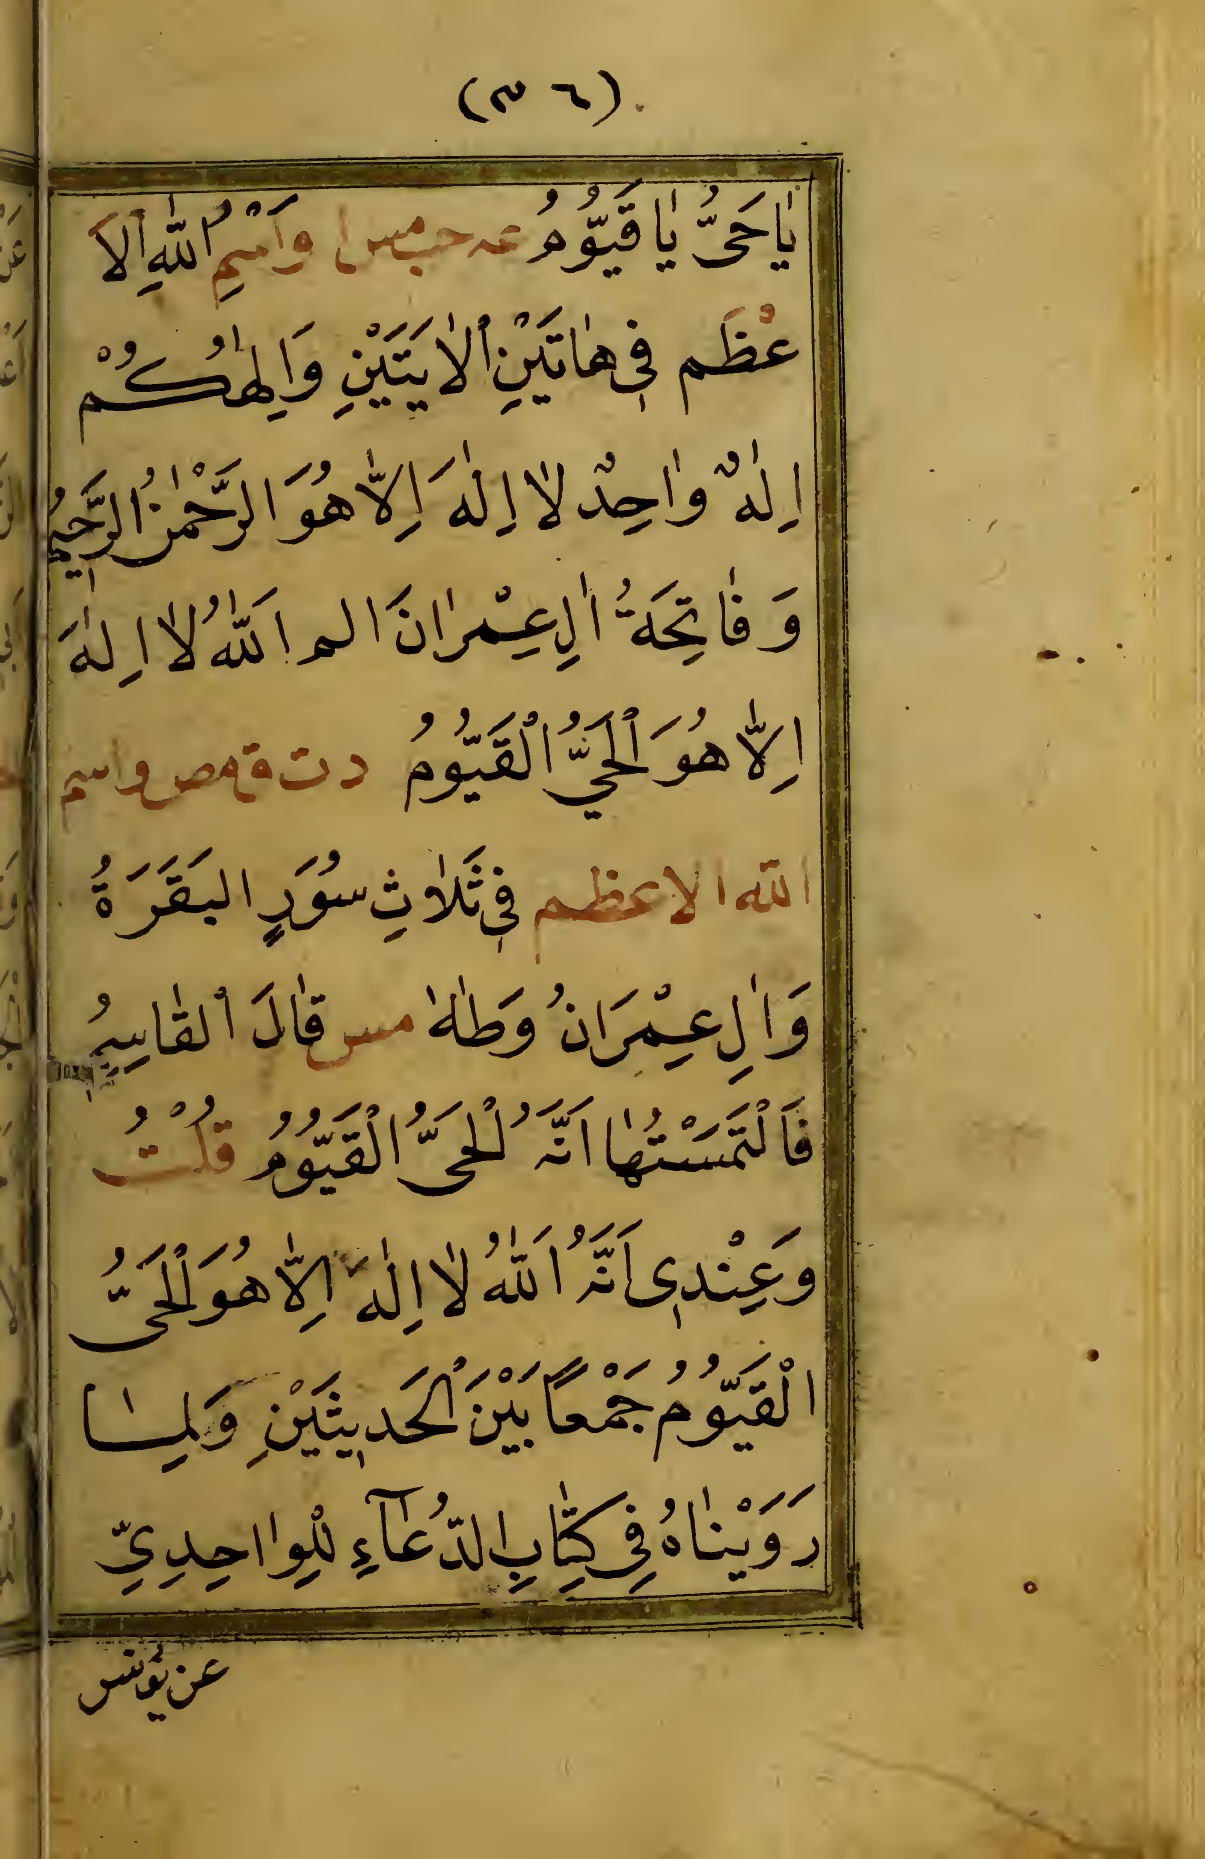 (٣٦)
يَا حَىُّ يَا قَيُّومُ عه حب مس ا وَاسْمُ اللّٰهِ الْاَ
عْظَم فِى هَاتَيْنِ الْاٰيَتَيْنِ وَاِلٰهُكُمْ
اِلٰهٌ وَاحِدٌ لَا اِلٰهَ اِلَّا هُوَ الرَّحْمٰنُ الرَّحِيمُ
وَفَاتِحَةُ اٰلِ عِمْرَانَ الم اَللّٰهُ لَا اِلٰهَ
اِلَّا هُوَ الْحَىُّ الْقَيُّومُ د ت ق مص واسم
اللّٰه الاعظم فِى ثَلَاثِ سُوَرٍ البَقَرَةُ
وَاٰلِ عِمْرَانُ وَطٰهٰ مس قَالَ الْقَاسِمُ
فَالْتَمَسْتُهَا اَنَّهُ الْحَىُّ الْقَيُّومُ قُلْتُ
وَعِنْدِى اَنَّهُ اَللّٰهُ لَا اِلٰهَ اِلَّا هُوَ الْحَىُّ
الْقَيُّومُ جَمْعًا بَيْنَ الْحَدِيثَيْنِ وَلِمَا
رَوَيْنَاهُ فِى كِتَابِ الدُّعَآءِ لِلْوَاحِدِيِّ
عن يونس